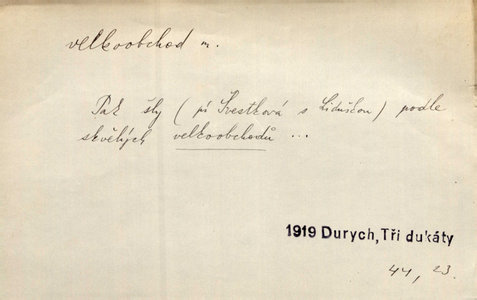 velkoobchod m.
Tak šly (pí Švestková s Liduškou) podle
skvělých velkoobchodů ...
1919 Durych, Tři dukáty
44, 23.